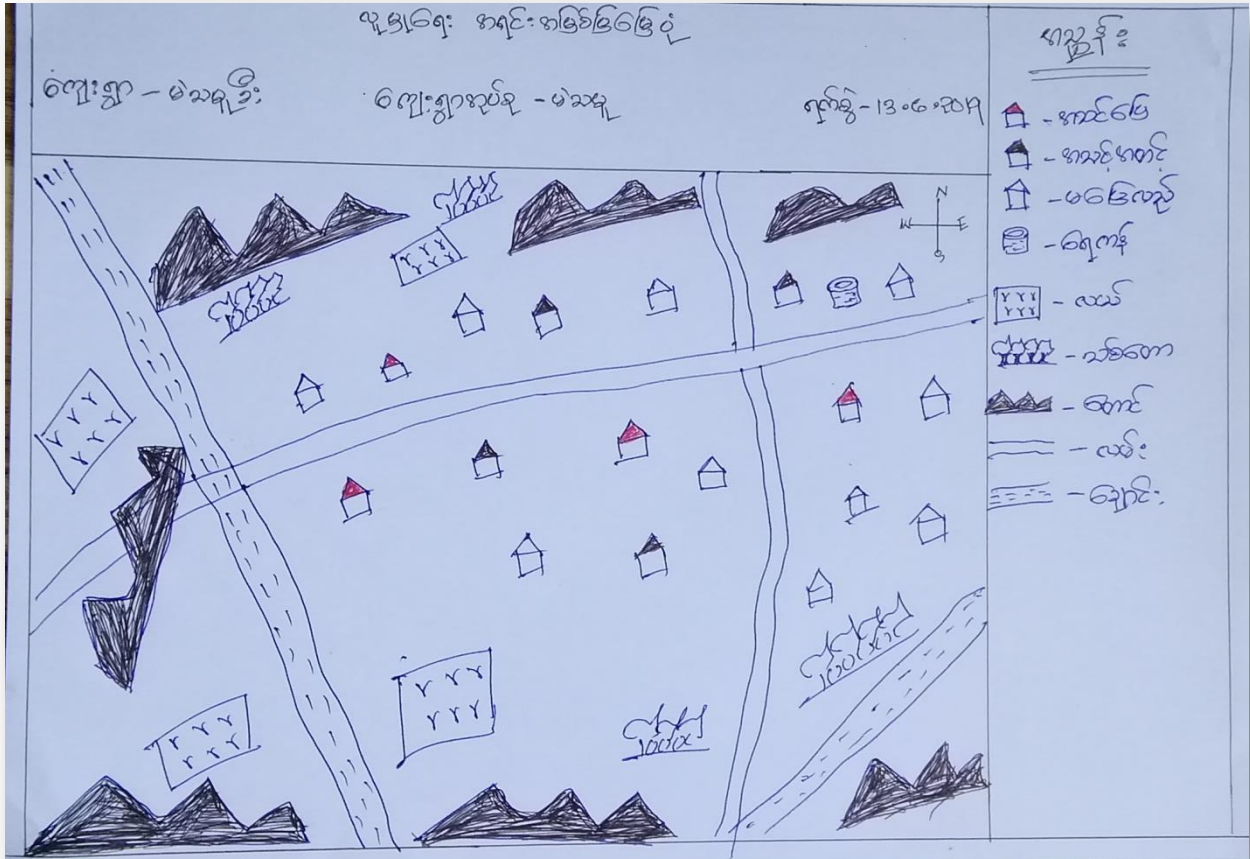 လူမှုရေး အရင်းအမြစ်ပြမြေပုံ
ကျေးရွာ - မဲသမူဦး ကျေးရွာအုပ်စု - မဲသမူ ရက်စွဲ - ၁၃.၆.၂၀၁၉
အညွှန်း
- အဆင်ပြေ
- အသင့်အတင့်
- မပြေလည်
- ရေကန်
- လယ်
- သစ်တော
- တောင်
- လမ်း
- ချောင်း
N
W E
S